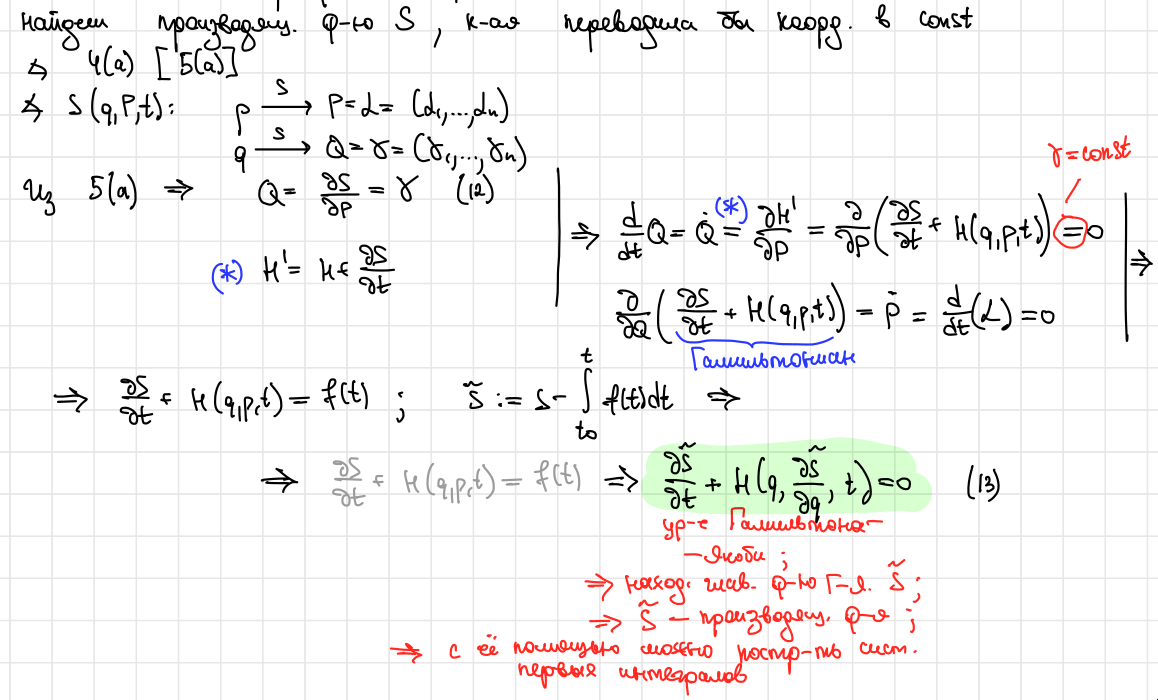 Найдем производящ. ф-ю S, к-ая переводила бы коорд. в const
4(a) [5(a)]
S(q,P,t): p →(S) P=α=(α₁,...,αₙ)
q →(S) Q=γ=(γ₁,...,γₙ)
γ=const
Из 5(a) ⇒ Q= ∂S/∂P = γ (12)
(*) H' = H+ ∂S/∂t
⇒ d/dt Q = Q̇ =(*) ∂H'/∂P = ∂/∂P (∂S/∂t + H(q,p,t)) = 0
∂/∂Q (∂S/∂t + H(q,p,t)) = Ṗ = d/dt (α) = 0 ⇒
Гамильтониан
⇒ ∂S/∂t + H(q,p,t) = f(t) ; S̃ := S - ∫ₜ₀ᵗ f(t)dt ⇒
⇒ ∂S/∂t + H(q,p,t) = f(t) ⇒ ∂S̃/∂t + H(q, ∂S̃/∂q, t) = 0 (13)
ур-е Гамильтона-
-Якоби ;
⇒ наход. глав. ф-ю Г-Я. S̃ ;
⇒ S̃ — производящ. ф-я ;
⇒ с её помощью можно постр-ть сист.
первых интегралов